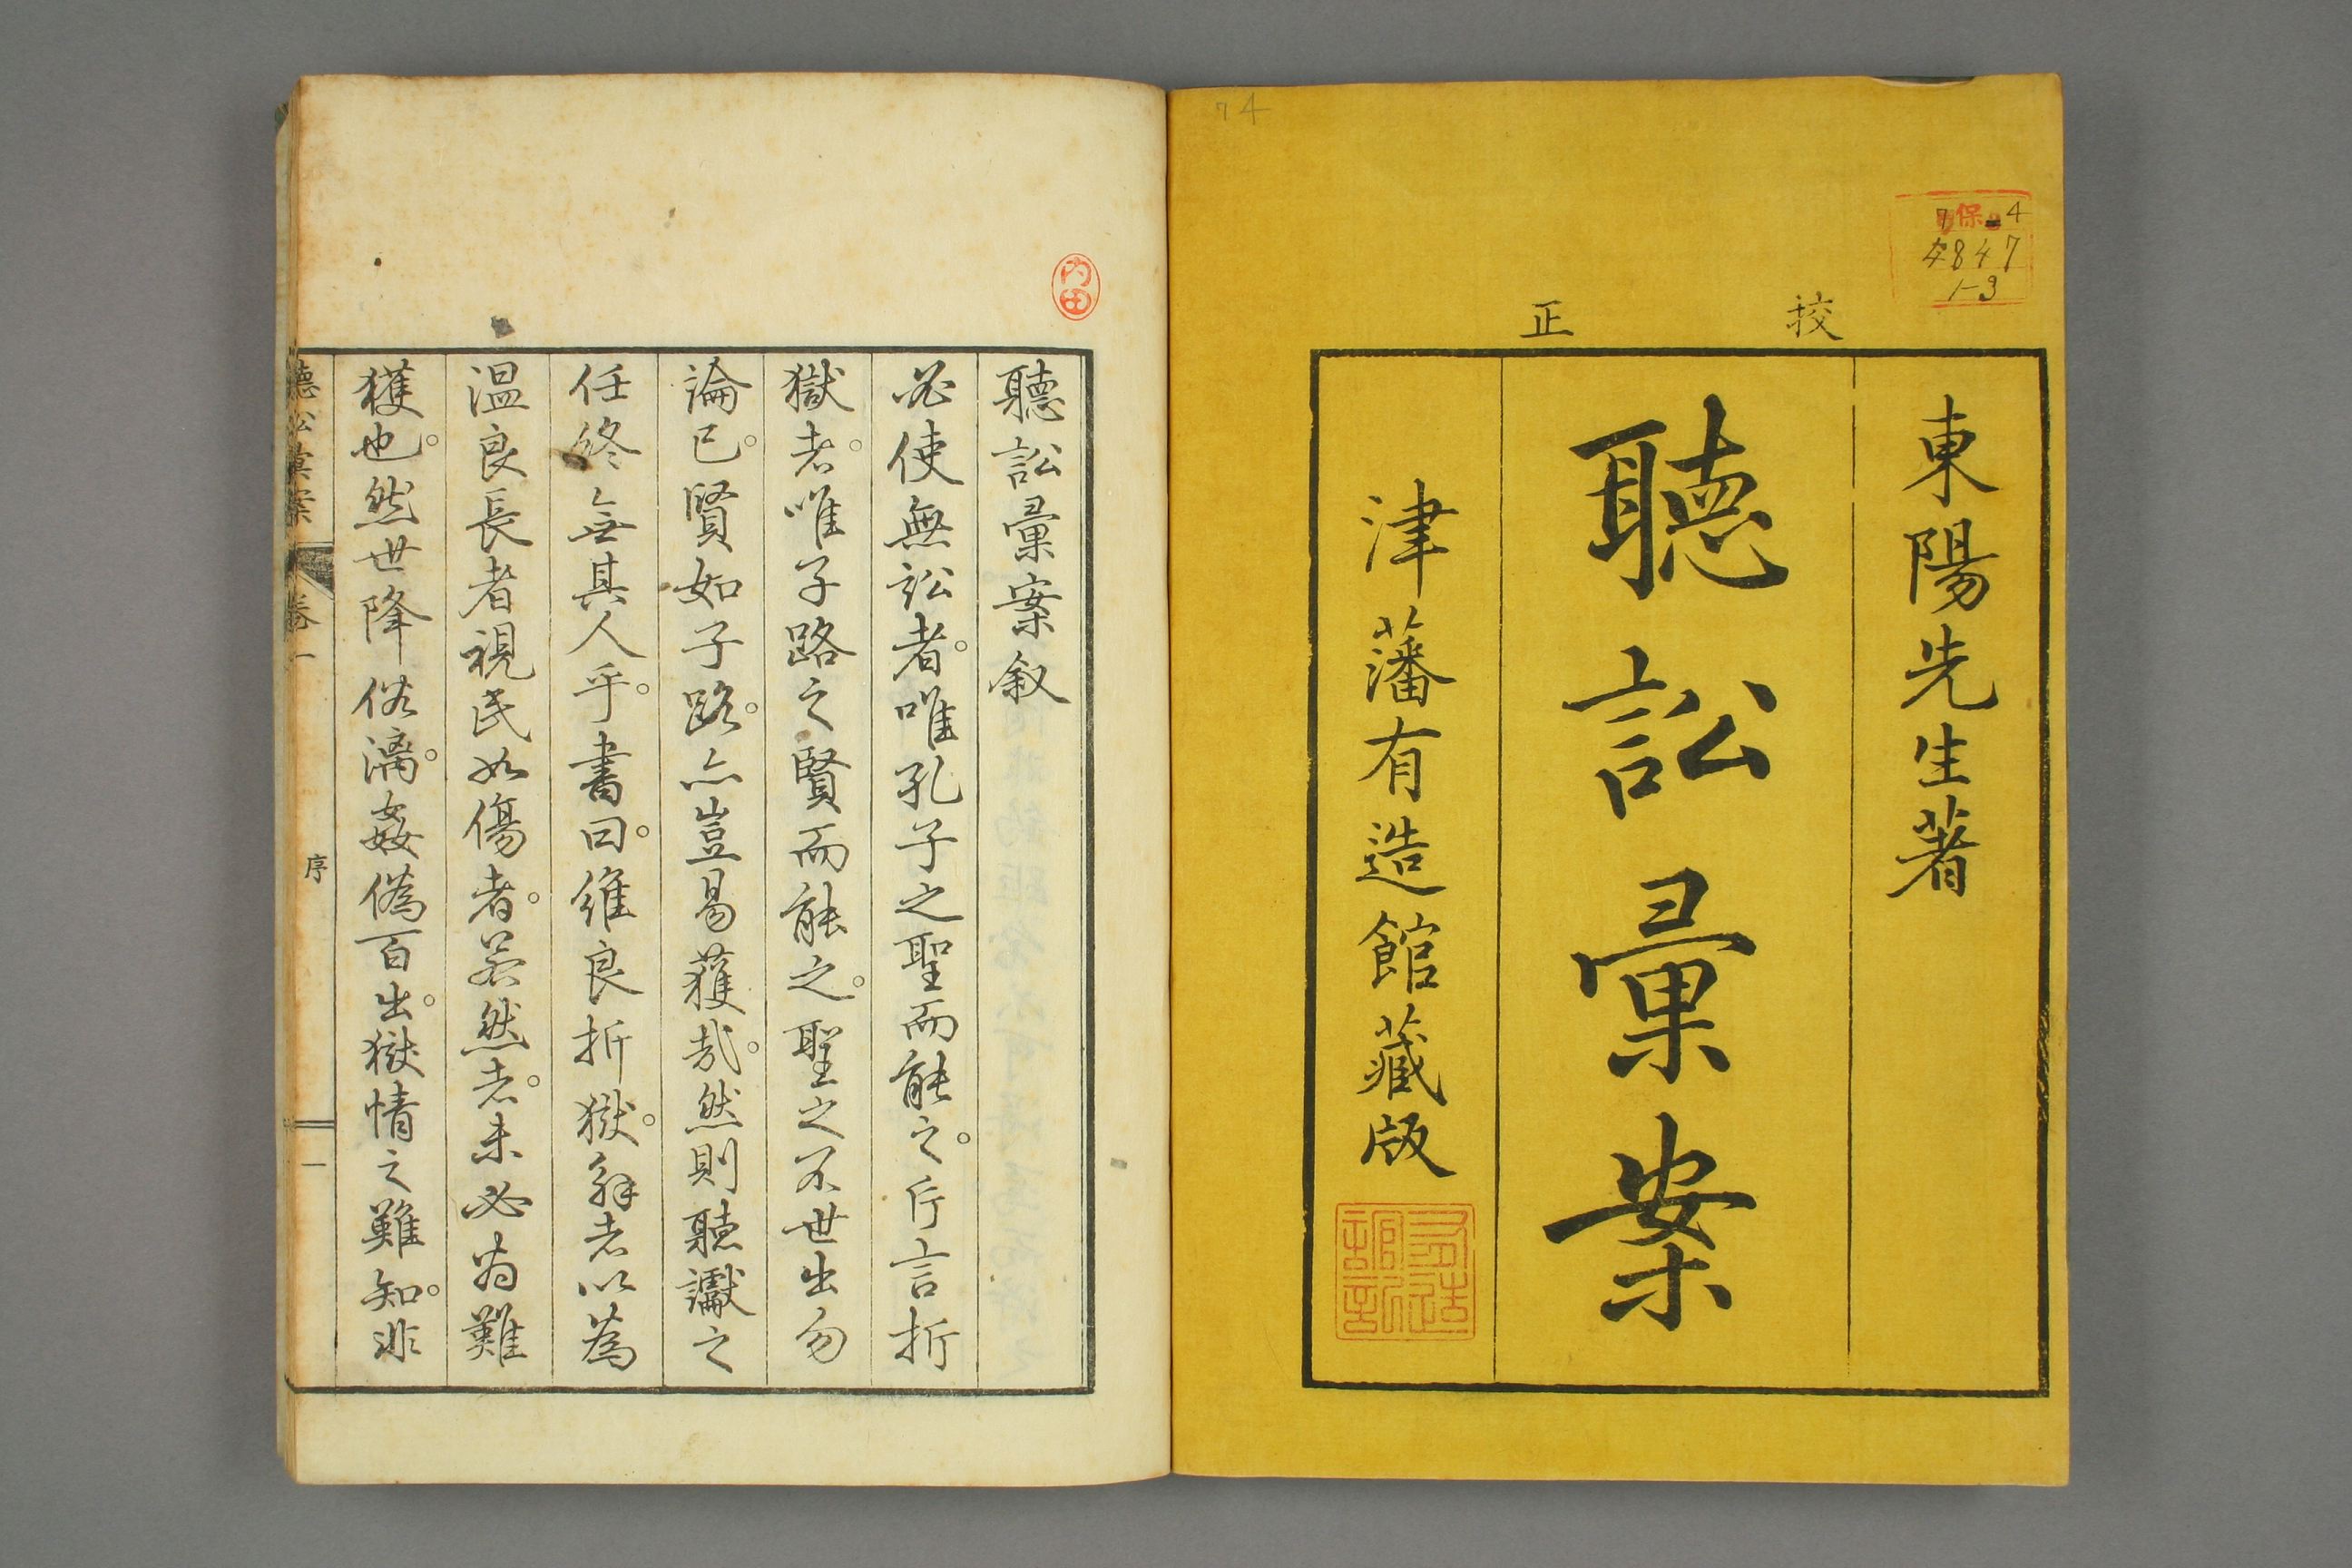 74
保
4847
1-3
挍正
東陽先生著
聽訟彙案
津藩有造館藏版
內田
聽訟彙案叙
必使無訟者。唯孔子之聖而能之。片言折
獄者。唯子路之賢而能之。聖之不世出勿
論已。賢如子路。亦豈易獲哉。然則聽讞之
任終無其人乎。書曰。維良折獄。解者以為
溫良長者視民如傷者。若然者。未必為難
獲也。然世降俗漓。姦僞百出。獄情之難知。非
聽訟彙案 卷一 序 一